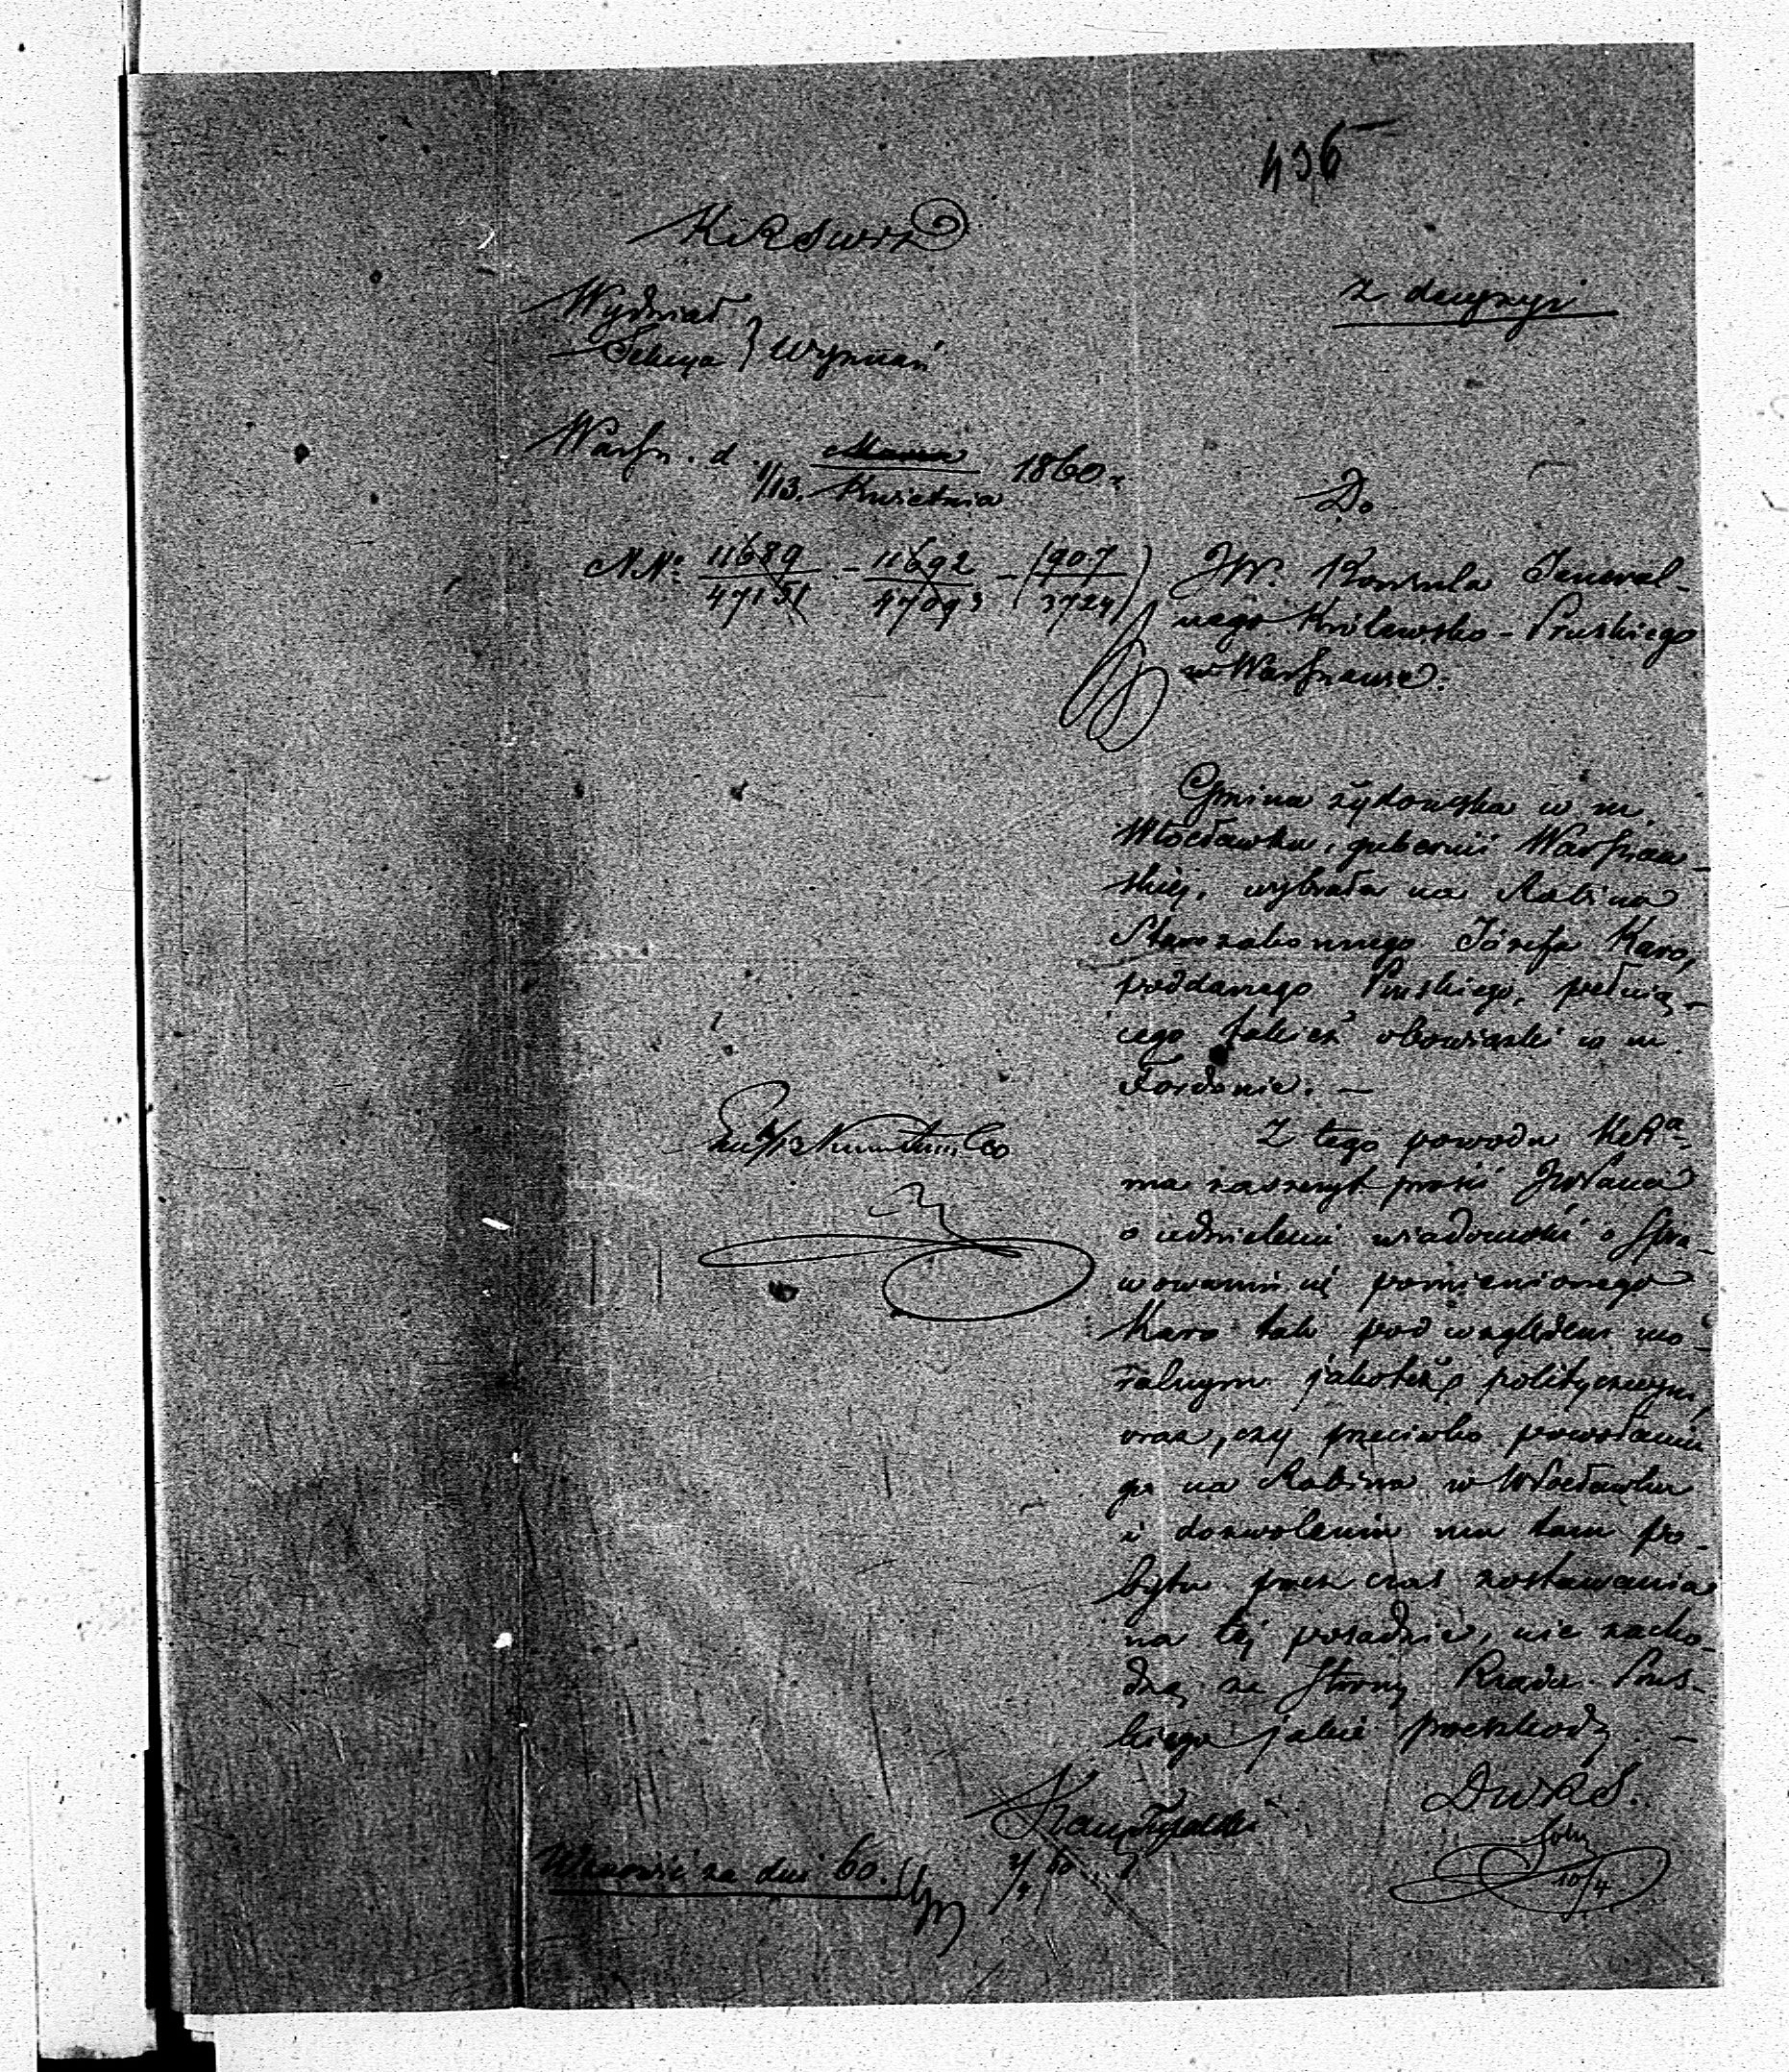 436
KRSWiD
z decyzyi
Wydział
Sekcya } Wyznań
Warszn. d. 1/13. Marca Kwietnia 1860 r.
Do
NNo 11689/47151 - 11692/47093 - (907/3724)
JW. Konsula Jeneral-
nego Królewsko-Pruskiego
w Warszawie.
Gmina żydowska w m.
Włocławku, gubernii Warszaw-
skiej, wybrała na Rabina
Starozakonnego Józefa Karo,
poddanego Pruskiego, pełnią-
cego takież obowiązki w m.
Fordonie. —
Z tego powodu KRa
ma zaszczyt prosić JWPana
o udzielenie wiadomości o spra-
wowaniu się pomienionego
Karo tak pod względem mo-
ralnym jakoteż politycznym,
oraz, czy przeciwko powołaniu
go na Rabina w Włocławku
i dozwoleniu mu tam po-
bytu przez czas zostawania
na tej posadzie, nie zacho-
dzą ze strony Rządu Prus-
kiego jakie przeszkody. —
DWRS.
10/4
Wznowić za dni 60.